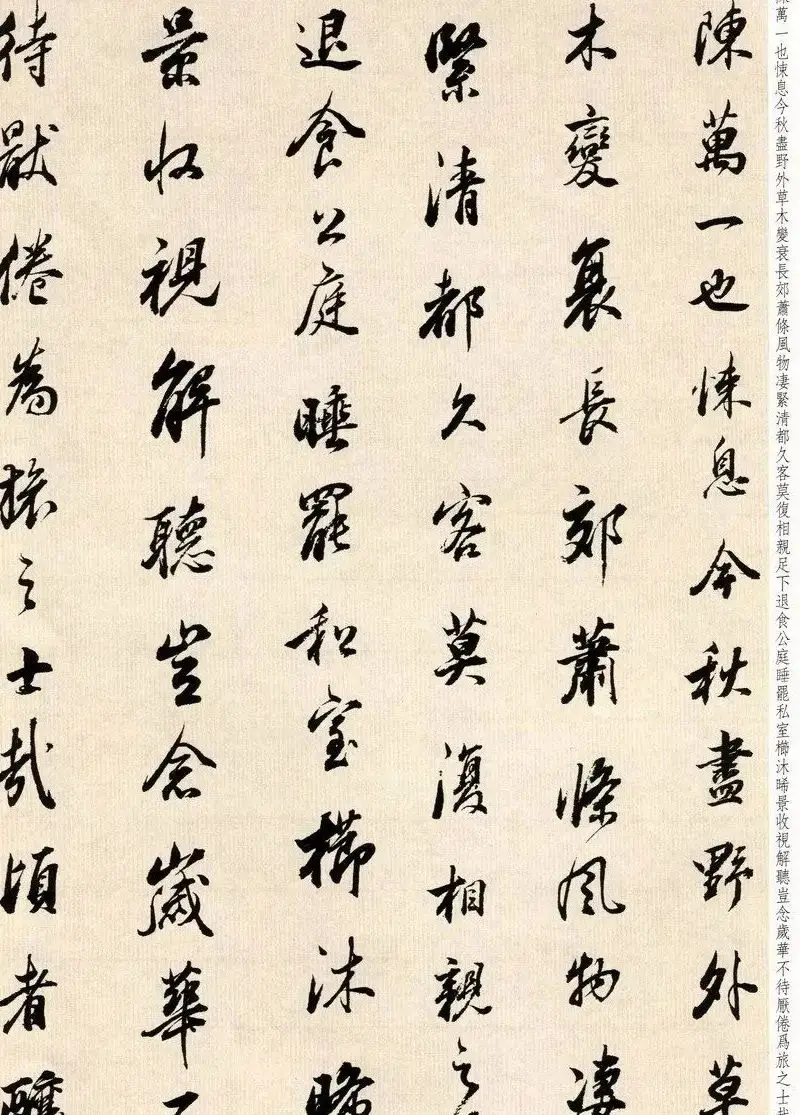 陳萬一也悚息今秋盡野外草木變衰長郊蕭條風物凄緊清都久客莫復相親足下退食公庭睡罷私室櫛沐晞景收視解聽豈念歲華不待厭倦爲旅之士哉
陳萬一也悚息今秋盡野外草
木變衰長郊蕭條風物凄
緊清都久客莫復相親足
退食公庭睡罷私室櫛沐晞
景收視解聽豈念歲華不
待厭倦為旅之士哉頃者